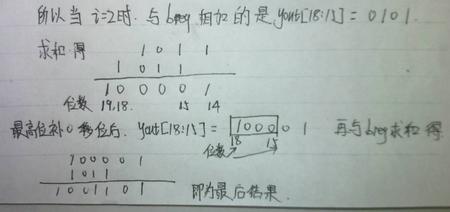 所以当 i=2时. 与breg 相加的是 yout[18:15] = 0101.
求和得
1 0 1 1 1
1 0 1 1
1 0 0 0 0 1
位数 19.18. 15 14
最高位补0移位后. yout[18:15] = 1000 0 1 再与breg求和得
位数 18 15
1 0 0 0 0 1
1 0 1 1
1 0 0 1 1 0 1 即为最后结果.